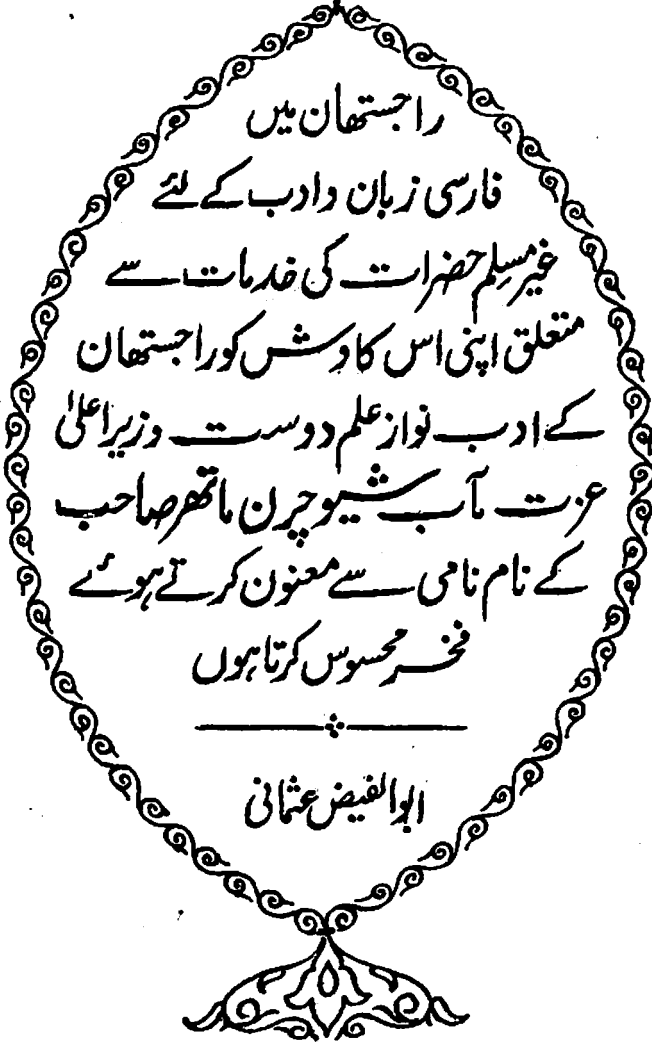 راجستھان میں
فارسی زبان و ادب کے لئے
غیر مسلم حضرات کی خدمات سے
متعلق اپنی اس کاوش کو راجستھان
کے ادب نواز علم دوست وزیر اعلیٰ
عزت مآب شیو چرن ماتھر صاحب
کے نام نامی سے معنون کرتے ہوئے
فخر محسوس کرتا ہوں
ابوالفیض عثمانی